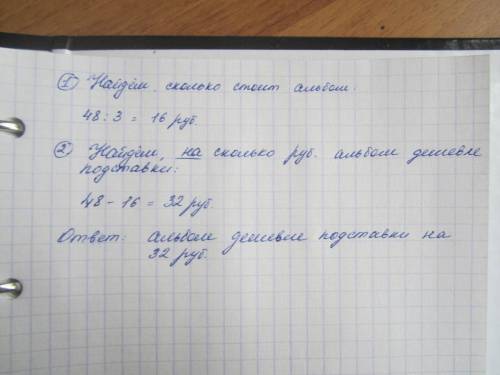 ① Найдём, сколько стоит альбом:
48 : 3 = 16 руб.
② Найдём, на сколько руб. альбом дешевле
подставки:
48 - 16 = 32 руб.
Ответ: альбом дешевле подставки на
32 руб.